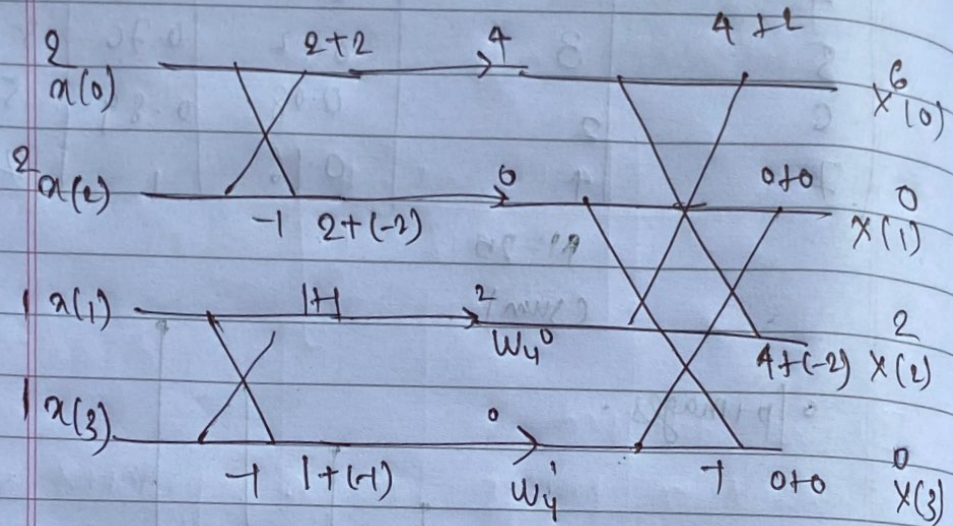 2 2+2 4 4+2 6
x(0) X(0)
2 x(2) -1 2+(-2) 0 0+0 0
X(1)
1 x(1) 1+1 2 W4⁰ 4+(-2) 2
X(2)
1 x(3) -1 1+(-1) 0 W4¹ -1 0+0 0
X(3)